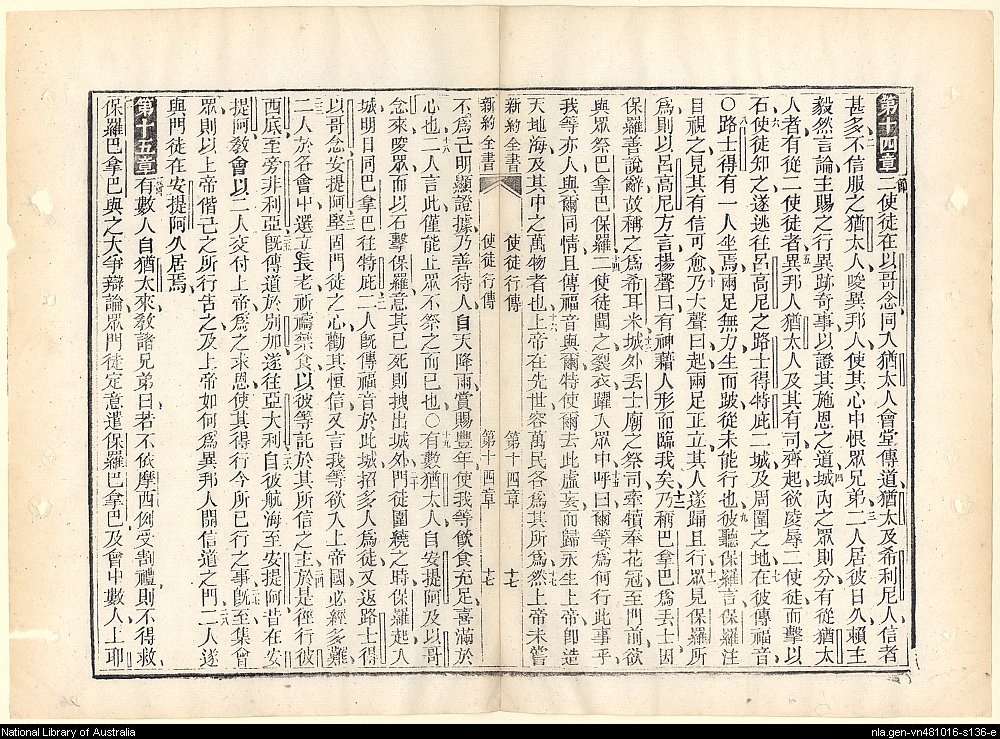 第十四章 一節 二使徒在以哥念同入猶太人會堂傳道猶太及希利尼人信者
甚多 二 不信服之猶太人唆異邦人使其心中恨眾兄弟 三 二人居彼日久賴主
毅然言論主賜之行異跡奇事以證其施恩之道 四 城內之眾則分有從猶太
人者有從二使徒者 五 異邦人猶太人及其有司齊起欲凌辱二使徒而擊以
石 六 使徒知之遂逃往呂高尼之路士得特庇二城及周圍之地 七 在彼傳福音
〇 八 路士得有一人坐焉兩足無力生而跛從未能行也 九 彼聽保羅言保羅注
目視之見其有信可愈 十 乃大聲曰起兩足正立其人遂踊且行 十一 眾見保羅所
為則以呂高尼方言揚聲曰有神藉人形而臨我矣 十二 乃稱巴拿巴為丟士因
保羅善說辭故稱之為希耳米 十三 城外丟士廟之祭司牽犢奉花冠至門前欲
與眾祭巴拿巴保羅 十四 二使徒聞之裂衣躍入眾中呼曰爾等為何行此事乎
十五 我等亦人與爾同情且傳福音與爾特使爾去此虛妄而歸永生上帝卽造
天地海及其中之萬物者也 十六 上帝在先世容萬民各為其所為 十七 然上帝未嘗
新約全書 使徒行傳 第十四章 十七
新約全書 使徒行傳 第十四章 十七
不為己明顯證據乃善待人自天降雨賞賜豐年使我等飲食充足喜滿於
心也 十八 二人言此僅能止眾不祭之而已也〇 十九 有數猶太人自安提阿及以哥
念來唆眾而以石擊保羅意其已死則拽出城外 二十 門徒圍繞之時保羅起入
城明日同巴拿巴往特庇 二一 二人旣傳福音於此城招多人為徒又返路士得
以哥念安提阿 二二 堅固門徒之心勸其恒信又言我等欲入上帝國必經多難
二三 二人於各會中選立長老祈禱禁食以彼等託於其所信之主 二四 於是徑行彼
西底至旁非利亞 二五 旣傳道於別加遂往亞大利 二六 自彼航海至安提阿昔在安
提阿敎會以二人交付上帝為之求恩使其得行今所已行之事 二七 旣至集會
眾則以上帝偕己之所行告之及上帝如何為異邦人開信道之門 二八 二人遂
與門徒在安提阿久居焉
第十五章 一節 有數人自猶太來敎諸兄弟曰若不依摩西例受割禮則不得救
二 保羅巴拿巴與之大爭辯論眾門徒定意遣保羅巴拿巴及會中數人上耶
National Library of Australia
nla.gen-vn481016-s136-e